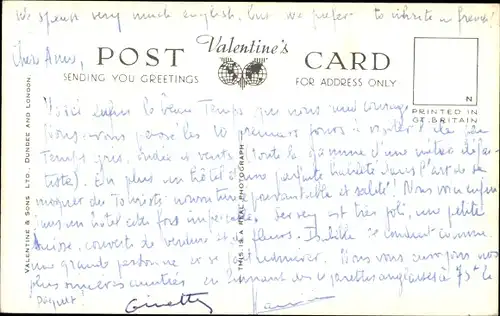 We speak very much english, but we prefer to write in french!
Chers Amis,
POST Valentine's CARD
SENDING YOU GREETINGS FOR ADDRESS ONLY
N
PRINTED IN
GT. BRITAIN
VALENTINE & SONS LTD. DUNDEE AND LONDON.
THIS IS A REAL PHOTOGRAPH
Voici enfin le beau Temps que nous
vous passé les 10 premiers jours à
Temps gris, ondée et vents (toute la gamme d'une météo
). En plus un hôtel d'une parfaite habileté dans l'art de se
moquer des Touristes nourriture et saleté! Nous voici enfin
dans un hôtel cette fois impeccable. Jersey est très joli, une petite
Suisse, couverte de verdure et de fleurs. Isabelle se conduit comme
une grande personne et se fait admirer. Nous vous envoyons nos
plus sincères amitiés en fumant des cigarettes anglaises à 75f le
paquet.
Ginette